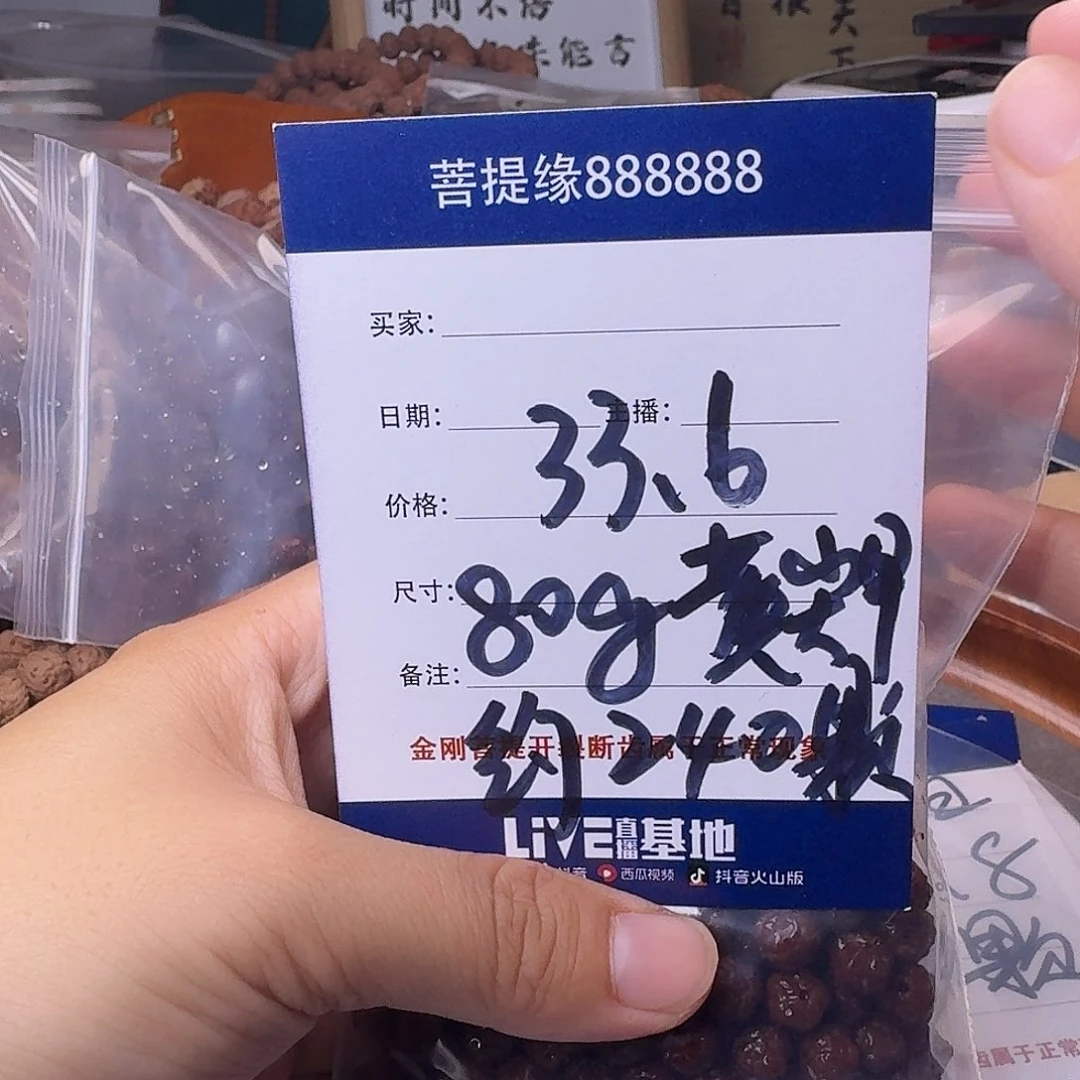 时间不语
能言
天下
菩提缘888888
买家：
日期： 主播：
33.6
价格：
尺寸：
80g黄
备注：
约240颗
金刚菩提开裂断齿属于正常现象
LiVE直播基地
抖音 西瓜视频 抖音火山版
齿属于正常